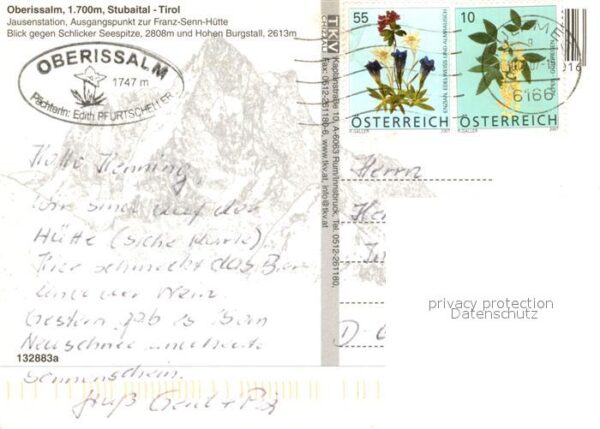 Oberissalm, 1.700m, Stubaital - Tirol
Jausenstation, Ausgangspunkt zur Franz-Senn-Hütte
Blick gegen Schlicker Seespitze, 2808m und Hohen Burgstall, 2613m
OBERISSALM
1747 m
Pächterin: Edith PFURTSCHELLER
Hallo Henning,
Wir sind auf der
Hütte (siehe Karte)
Hier schmeckt das Bier
und der Wein.
Gestern gab es
Neuschnee und heute
Sonnenschein.
Gruß
132883a
TKV
Kaplanstraße 10, A-6063 Rum/Innsbruck, Tel. 0512-261180,
Fax: 0512-261180-6, www.tkv.at, info@tkv.at
55
ENZIAN, EDELWEISS UND ALMRAUSCH
ÖSTERREICH
R. GALLER 2007
10
ÖSTERREICH
R. GALLER 2007
6166
016
Herrn
D-
privacy protection
Datenschutz